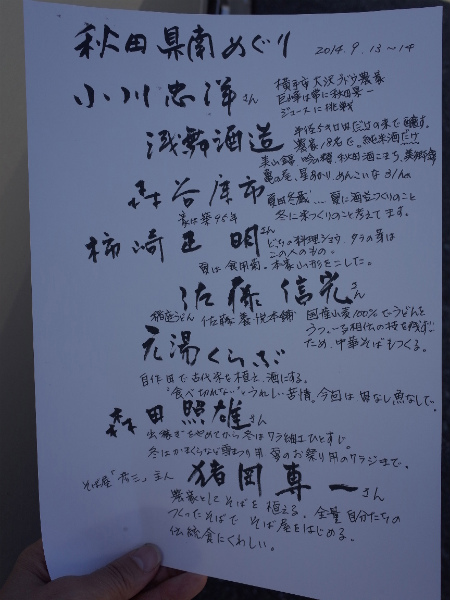 秋田県南めぐり 2014.9.13〜14
小川忠洋さん 横手市大沢ブドウ農家
巨峰は常に秋田県一
ジュースに挑戦
浅舞酒造 半径5キロ田だけの米で醸す。
農家18名で。純米酒だけ
美山錦 吟の精 秋田酒こまち、美郷錦
亀の尾、星あかり、めんこいな 3/1
森谷康市 夏田冬蔵… 夏に酒造づくりのこと
家は築95年 冬に米づくりのこと考えてます。
柿崎正明さん どちらの料理ショウ、タラの芽は
この人のもの。
夏は食用菊。本家山形をこした。
佐藤信光さん
稲庭うどん 佐藤養悦本舗 国産小麦100%でうどんを
うつ。一子相伝の技を残す
ため、中華そばもつくる。
元湯くらぶ
自作田で古代米を植え、酒にする。
"食べ切れない"うれしい苦情。今回は 肉なし魚なしで。
森田照雄さん
出稼ぎをやめてから冬はワラ細工ひとすじ。
冬はかまくらなど雪まつり用 夏のお祭り用のワラジまで。
そば屋 主人 猪岡専一さん
農家としてそばを植える。全量自分たちの
つくったそばで そば屋をはじめる。
伝統食にくわしい。